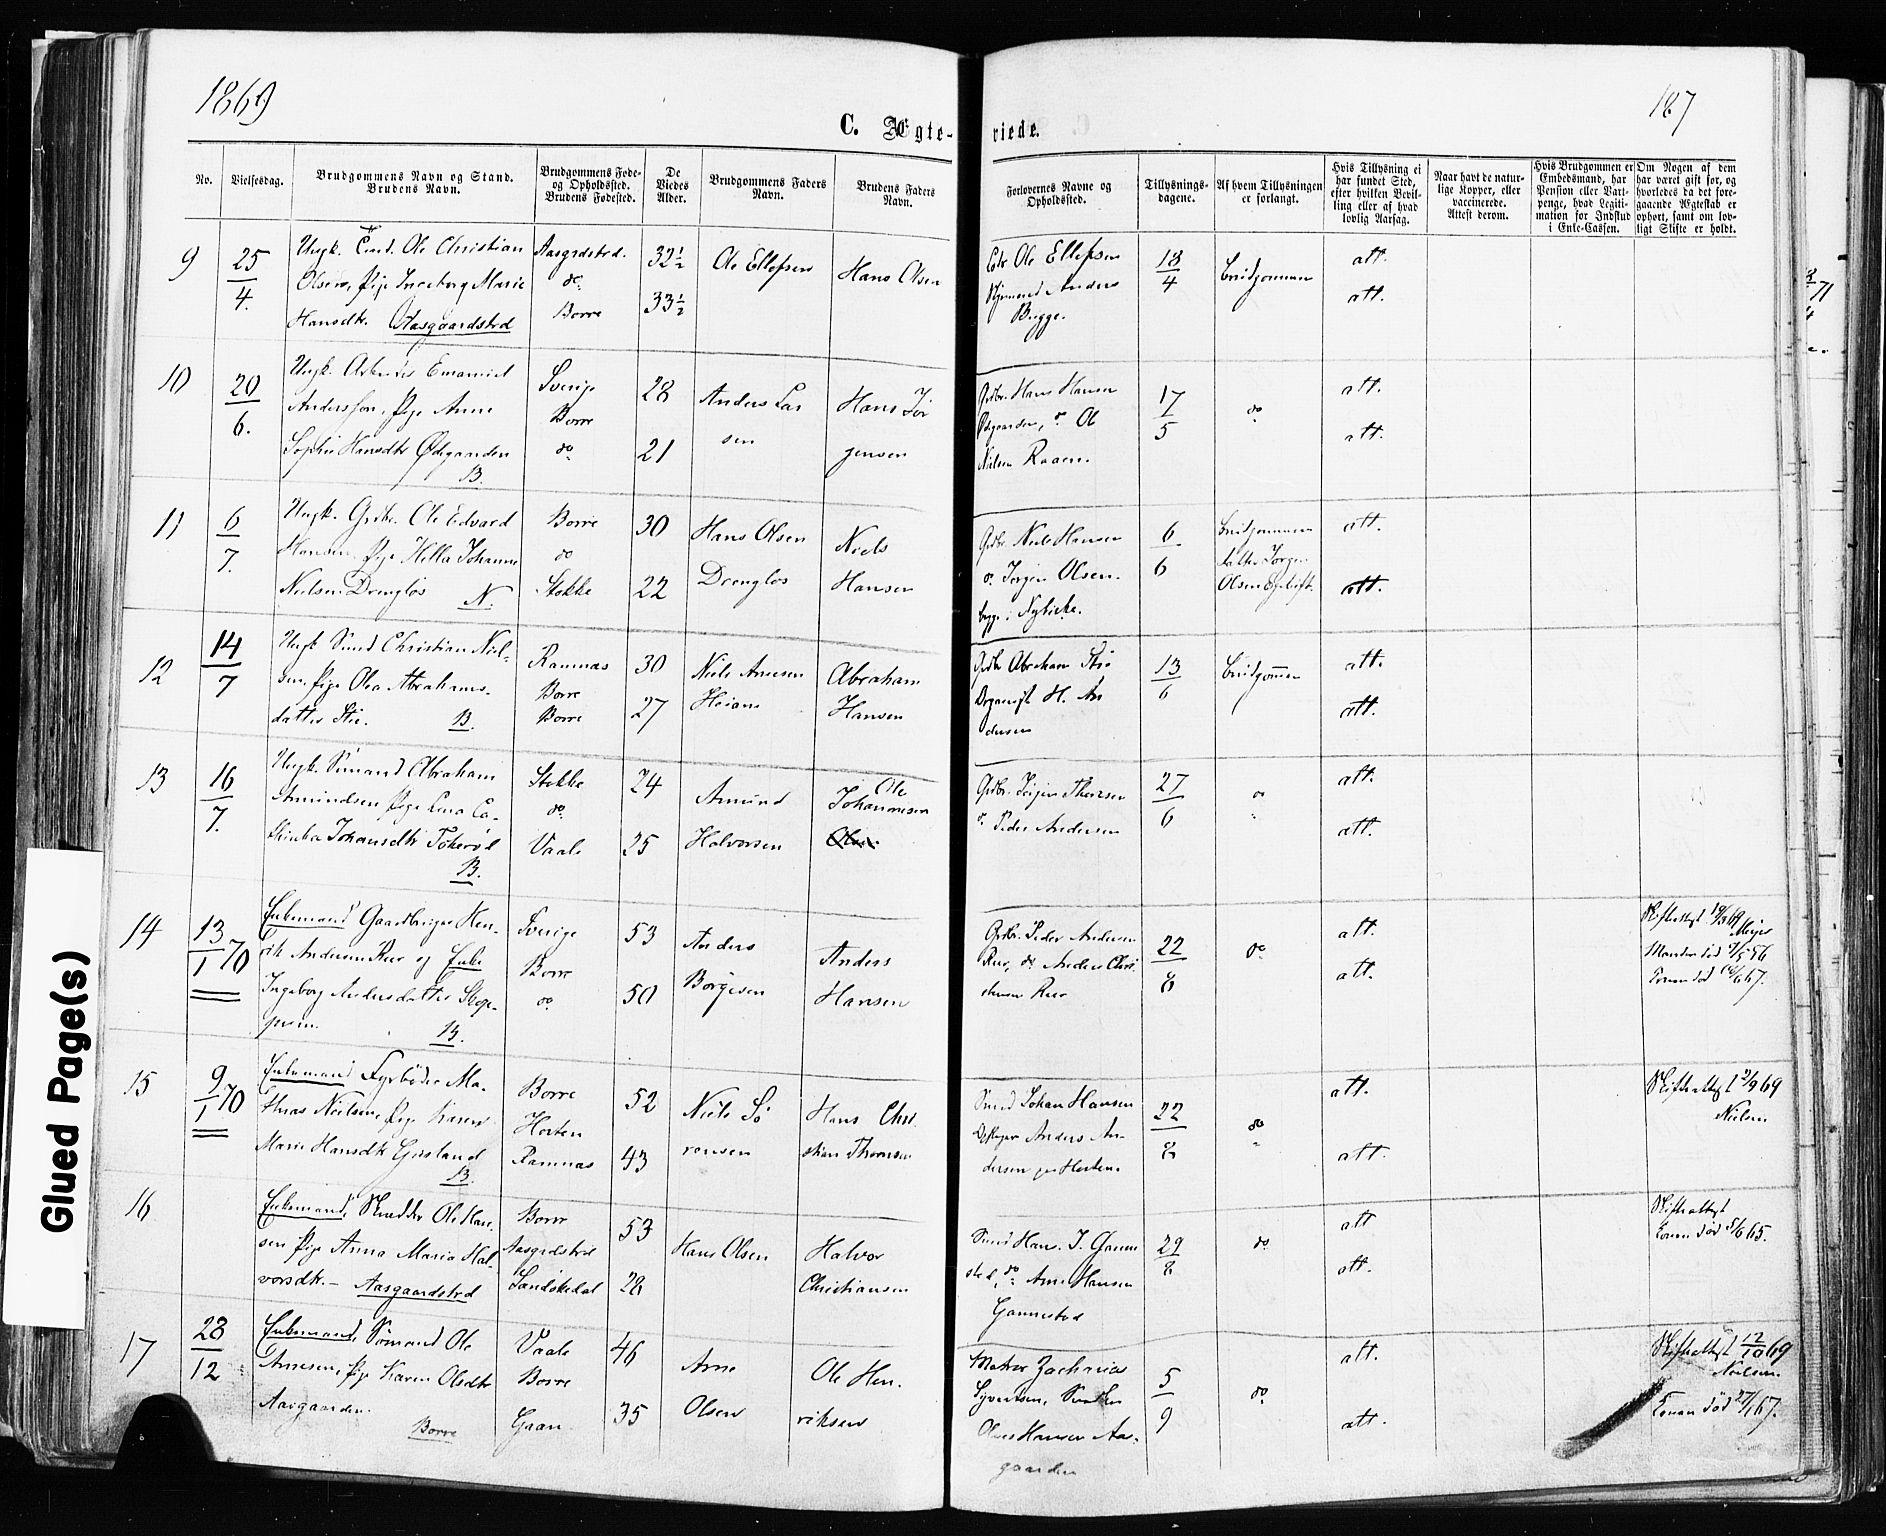 1869
187
C. Ægte-
viede.
No.
Vielsesdag.
Brudgommens Navn og Stand.
Brudens Navn.
Brudgommens Føde-
og Opholdssted.
Brudens Fødested.
De
Viedes
Alder.
Brudgommens Faders
Navn.
Brudens Faders
Navn.
Forlovernes Navne og
Opholdssted.
Tillysnings-
dagene.
Af hvem Tillysningen
er forlangt.
Hvis Tillysning ei
har fundet Sted,
efter hvilken Bevil-
ling eller af hvad
lovlig Aarsag.
Naar havt de natur-
lige Kopper, eller
vaccinerede.
Attest derom.
Hvis Brudgommen er
Embedsmand, har
Pension eller Vart-
penge, hvad Legiti-
mation for Indskud
i Enke-Cassen.
Om Nogen af dem
har været gift før, og
hvorledes da det fore-
gaaende Ægteskab er
ophørt, samt om lov-
ligt Skifte er holdt.
9
25
4.
Ungk. Ole Christian
Olsen, Pige Ingeborg Marie
Hansdtr. Aasgaardstrd
Aasgrdstrd.
do
Borre
32½
33½
Ole Ellefsen
Hans Olsen
Ole Ellefsen
Anders
Bugge.
18
4
Brudgommen
att.
att.
10
20
6.
Ungk. Emanuel
Andersson, Pige Anne
Sophie Hansdtr Ødegaarden
B.
Sverige
Borre
do
28
21
Anders Lar
sen
Hans Jør
gensen
Grdbr. Hans Hansen
Ødegaarden, Ole
Nielsen Raaen.
17
5
do
att.
att.
11
6
7.
Ungk. Grdbr. Ole Edvard
Hansen, Pige Hella Johanne
Nielsen Drengløs N.
Borre
do
Stokke
30
22
Hans Olsen
Drengløs
Niels
Hansen
Grdbr. Niels Hansen
Jørgen Olsen
6
6
Brudgommens
Jørgen
Olsen
att.
att.
12
14
7
Ungk Christian Niel-
sen, Pige Olea Abrahams-
datter Stie. B.
Ramnæs
Borre
Borre
30
27
Niels Arnesen
Abraham
Hansen
Grdbr Abraham Stie
H. An
dersen
13
6
Brudgommen
att.
att.
13
16
7.
Ungk. Sømand Abraham
Amundsen Pige Lena Ca-
Johansdtr
B.
Stokke
do.
Vaale
24
25
Amund
Halvorsen
Ole
Johannesen
Grdbr. Jørgen
Peder Andersen
27
6
do
att.
att.
14
13
1 70
Enkemand Gaardbruger Hen-
rik Andersen Rør og Enke
Ingeborg Andersdatter
B.
Sverige
Borre
do
53
50
Anders
Børgesen
Anders
Hansen
Grdbr. Peder Andersen
Rør, do Anders Chri
stensen Rør
22
8
do
att.
att.
Skifteattest 19/3 69
Manden død 7/5 56
Konen død 67.
15
9
1 70
Enkemand Fyrbøder Ma-
thias Nielsen, Pige Karen
Marie Hansdtr
B.
Borre
Horten
Ramnæs
52
43
Niels Sø
rensen
Hans Chri
stian Thomsen
Johan Hansen
Anders An-
dersen Horten.
22
8
do
att.
att.
Skifteattest 2/9 69
Nielsen.
16
Enkemand, Skrædder Ole Han-
sen Pige Anna Maria Hal-
vorsdtr. – Aasgaardstrd
Borre
Aasgrdstrd
Sandøkedal
53
28
Hans Olsen
Halvor
Christiansen
Hans J. Ganne
sted, do Arne Hansen
Gannestad
29
8
do
att
att.
Skifteattest
Konen død 5/6 65.
17
28
12
Enkemand, Sømand Ole
Arnesen, Pige Karen Olsdtr
Aasgaarden.
Borre
Vaale
Borre
46
35
Arne
Olsen
Ole Hen-
riksen
Zacharias
Syvertsen,
Hansen Aas-
gaarden
5
9
do
att.
att.
Skifteattest 12/10 69
Nielsen.
Konen død 27/1 67.
Glued Page(s)